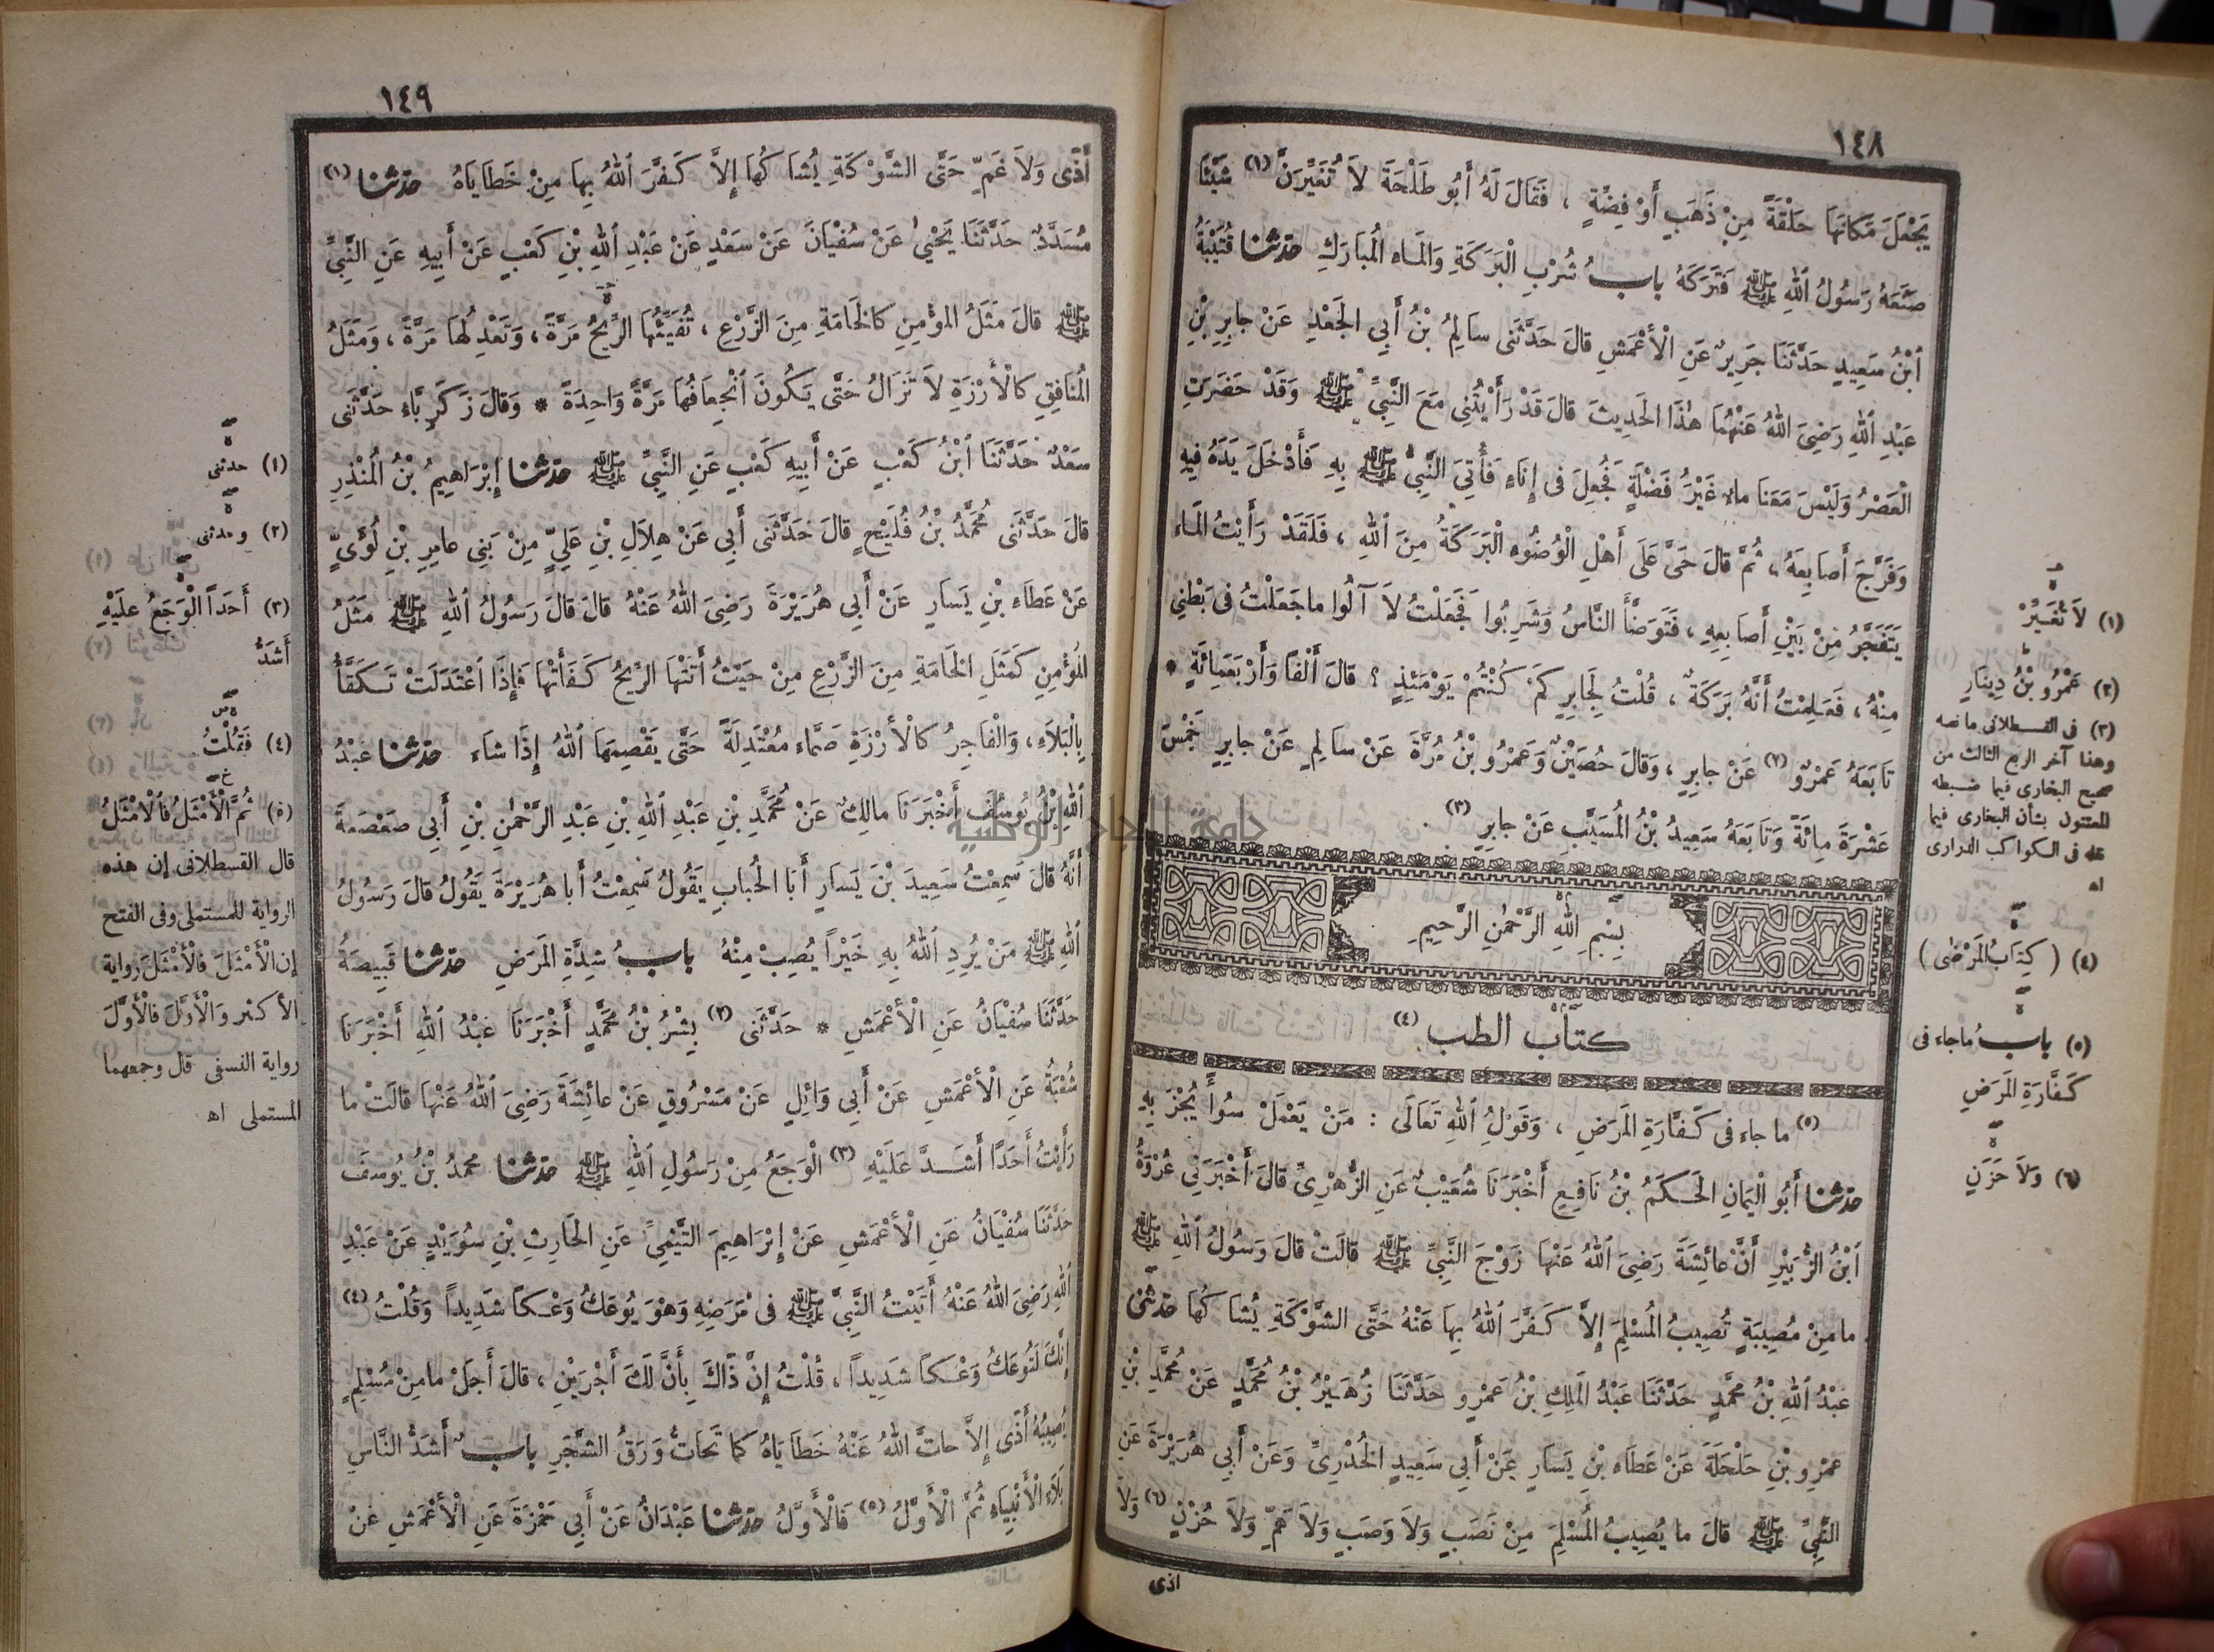 ١٤٨
يَجْعَلَ مَكَانَهَا حَلْقَةً مِنْ ذَهَبٍ أَوْ فِضَّةٍ ، فَقَالَ لَهُ أَبُو طَلْحَةَ لاَ تُغَيِّرَنَّ (١) شَيْئًا
صَنَعَهُ رَسُولُ اللهِ ﷺ فَتَرَكَهُ بابُ شُرْبِ الْبَرَكَةِ وَالْمَاءِ الْمُبَارَكِ حدثنا قُتَيْبَةُ
ابْنُ سَعِيدٍ حَدَّثَنَا جَرِيرٌ عَنِ الْأَعْمَشِ قالَ حَدَّثَنِى سالِمُ بْنُ أَبِي الْجَعْدِ عَنْ جابِرِ بْنِ
عَبْدِ اللهِ رَضِيَ اللهُ عَنْهُمَا هٰذَا الْحَدِيثَ قالَ قَدْ رَأَيْتُنِى مَعَ النَّبِيِّ ﷺ وَقَدْ حَضَرَتِ
الْعَصْرُ وَلَيْسَ مَعَنَا ماءٌ غَيْرُ فَضْلَةٍ فَجُعِلَ فى إِنَاءٍ فَأُتِيَ النَّبِيُّ ﷺ بِهِ فَأَدْخَلَ يَدَهُ فِيهِ
وَفَرَّجَ أَصابِعَهُ ، ثُمَّ قالَ حَىَّ عَلَى أَهْلِ الْوُضُوءِ الْبَرَكَةُ مِنَ اللهِ ، فَلَقَدْ رَأَيْتُ الْمَاء
يَتَفَجَّرُ مِنْ بَيْنِ أَصابِعِهِ ، فَتَوَضَّأَ النَّاسُ وَشَرِبُوا فَجَعَلْتُ لاَ آلُوا ما جَعَلْتُ فى بَطْنِي
مِنْهُ ، فَعَلِمْتُ أَنَّهُ بَرَكَةٌ ، قُلْتُ لِجَابِرٍ كَمْ كُنْتُمْ يَوْمَئِذٍ ؟ قالَ أَلْفًا وَأَرْبَعَمِائَةٍ *
تَابَعَهُ عَمْرٌو (٢) عَنْ جابِرٍ ، وَقالَ حُصَيْنٌ وَعَمْرُو بْنُ مُرَّةَ عَنْ سالِمٍ عَنْ جابِرٍ خَمْسَ
عَشْرَةَ مِائَةً وَتَابَعَهُ سَعِيدُ بْنُ الْمُسَيَّبِ عَنْ جابِرٍ (٣) .
بِسْمِ اللهِ الرَّحْمٰنِ الرَّحِيمِ
كتاب الطب (٤)
(٥) ما جاء فى كَفَّارَةِ الْمَرَضِ ، وَقَوْلُ اللهِ تَعَالَى : مَنْ يَعْمَلْ سُوأً يُجْزَ بِهِ
حدثنا أَبُو الْيَمَانِ الْحَكَمُ بْنُ نَافِعٍ أَخْبَرَنَا شُعَيْبٌ عَنِ الزُّهْرِىِّ قالَ أَخْبَرَنِي عُرْوَةُ
ابْنُ الزُّبَيْرِ أَنَّ عائِشَةَ رَضِيَ اللهُ عَنْهَا زَوْجَ النَّبِيِّ ﷺ قالَتْ قالَ رَسُولُ اللهِ ﷺ
ما مِنْ مُصِيبَةٍ تُصِيبُ الْمُسْلِمَ إِلاَّ كَفَّرَ اللهُ بِهَا عَنْهُ حَتَّى الشَّوْكَةِ يُشَاكُهَا حدثنى
عَبْدُ اللهِ بْنُ مُحَمَّدٍ حَدَّثَنَا عَبْدُ الْمَلِكِ بْنُ عَمْرٍو حَدَّثَنَا زُهَيْرُ بْنُ مُحَمَّدٍ عَنْ مُحَمَّدِ بْنِ
عَمْرِو بْنِ حَلْحَلَةَ عَنْ عَطَاءِ بْنِ يَسَارٍ عَنْ أَبِي سَعِيدٍ الْخُدْرِيِّ وَعَنْ أَبِي هُرَيْرَةَ عَنِ
النَّبِيِّ ﷺ قالَ ما يُصِيبُ الْمُسْلِمَ مِنْ نَصَبٍ وَلاَ وَصَبٍ وَلاَ هَمٍّ وَلاَ حُزْنٍ (٦) وَلاَ
اذى
(١) لاَ تُغَيِّرْ
(٢) عَمْرُو بْنُ دِينَارٍ
(٣) فى القسطلانى مانصه
وهنا آخر الربع الثالث من
صحيح البخارى فيما ضبطه
المعتنون بشأن البخارى فيما
فى الكواكب الدرارى
اه
(٤) ( كِتَابُ الْمَرْضَى )
(٥) بابُ ماجاء فى
كَفَّارَةِ الْمَرَضِ
(٦) وَلاَ حَزَنٍ
١٤٩
أَذًى وَلاَ غَمٍّ حَتَّى الشَّوْكَةِ يُشَاكُهَا إِلاَّ كَفَّرَ اللهُ بِهَا مِنْ خَطَايَاهُ حدثنا (١)
مُسَدَّدٌ حَدَّثَنَا يَحْيٰى عَنْ سُفْيَانَ عَنْ سَعْدٍ عَنْ عَبْدِ اللهِ بْنِ كَعْبٍ عَنْ أَبِيهِ عَنِ النَّبِيِّ
ﷺ قالَ مَثَلُ الْمُؤْمِنِ كالْخَامَةِ مِنَ الزَّرْعِ ، تُفَيِّئُهَا الرِّيحُ مَرَّةً ، وَتَعْدِلُهَا مَرَّةً ، وَمَثَلُ
الْمُنَافِقِ كالْأَرْزَةِ لاَ تَزَالُ حَتَّى يَكُونَ انْجِعَافُهَا مَرَّةً وَاحِدَةً * وَقالَ زَكَرِيَّاءُ حَدَّثَنِى
سَعْدٌ حَدَّثَنَا ابْنُ كَعْبٍ عَنْ أَبِيهِ كَعْبٍ عَنِ النَّبِيِّ ﷺ حدثنا إِبْرَاهِيمُ بْنُ الْمُنْذِرِ
قالَ حَدَّثَنِى مُحَمَّدُ بْنُ فُلَيْحٍ قالَ حَدَّثَنِى أَبِي عَنْ هِلاَلِ بْنِ عَلِيٍّ مِنْ بَنِي عامِرِ بْنِ لُؤَىٍّ
عَنْ عَطَاءِ بْنِ يَسَارٍ عَنْ أَبِي هُرَيْرَةَ رَضِيَ اللهُ عَنْهُ قالَ قالَ رَسُولُ اللهِ ﷺ مَثَلُ
الْمُؤْمِنِ كَمَثَلِ الْخَامَةِ مِنَ الزَّرْعِ مِنْ حَيْثُ أَتَتْهَا الرِّيحُ كَفَأَتْهَا فَإِذَا اعْتَدَلَتْ تَكَفَّأُ
بِالْبَلاَءِ ، وَالْفَاجِرُ كالْأَرْزَةِ صَمَّاءَ مُعْتَدِلَةً حَتَّى يَقْصِمَهَا اللهُ إِذَا شاءَ حدثنا عَبْدُ
اللهِ بْنُ يُوسُفَ أَخْبَرَنَا مالِكٌ عَنْ مُحَمَّدِ بْنِ عَبْدِ اللهِ بْنِ عَبْدِ الرَّحْمٰنِ بْنِ أَبِي صَعْصَعَةَ
أَنَّهُ قالَ سَمِعْتُ سَعِيدَ بْنَ يَسَارٍ أَبَا الْحُبَابِ يَقُولُ سَمِعْتُ أَبا هُرَيْرَةَ يَقُولُ قالَ رَسُولُ
اللهِ ﷺ مَنْ يُرِدِ اللهُ بِهِ خَيْراً يُصِبْ مِنْهُ بابُ شِدَّةِ الْمَرَضِ حدثنا قَبِيصَةُ
حَدَّثَنَا سُفْيَانُ عَنِ الْأَعْمَشِ * حَدَّثَنِى (٢) بِشْرُ بْنُ مُحَمَّدٍ أَخْبَرَنَا عَبْدُ اللهِ أَخْبَرَنَا
شُعْبَةُ عَنِ الْأَعْمَشِ عَنْ أَبِي وَائِلٍ عَنْ مَسْرُوقٍ عَنْ عائِشَةَ رَضِيَ اللهُ عَنْهَا قالَتْ ما
رَأَيْتُ أَحَدًا أَشَدَّ عَلَيْهِ (٣) الْوَجَعُ مِنْ رَسُولِ اللهِ ﷺ حدثنا مُحَمَّدُ بْنُ يُوسُفَ
حَدَّثَنَا سُفْيَانُ عَنِ الْأَعْمَشِ عَنْ إِبْرَاهِيمَ التَّيْمِيِّ عَنِ الْحَارِثِ بْنِ سُوَيْدٍ عَنْ عَبْدِ
اللهِ رَضِيَ اللهُ عَنْهُ أَتَيْتُ النَّبِيَّ ﷺ فى مَرَضِهِ وَهْوَ يُوعَكُ وَعْكاً شَدِيداً وَقُلْتُ (٤)
إِنَّكَ لَتُوعَكُ وَعْكاً شَدِيداً ، قُلْتُ إِنَّ ذَاكَ بِأَنَّ لَكَ أَجْرَيْنِ ، قالَ أَجَلْ ما مِنْ مُسْلِمٍ
يُصِيبُهُ أَذًى إِلاَّ حاتَّ اللهُ عَنْهُ خَطَايَاهُ كما تَحَاتُّ وَرَقُ الشَّجَرِ بابٌ أَشَدُّ النَّاسِ
بَلاَءِ الْأَنْبِيَاءِ ثُمَّ الْأَوَّلُ (٥) فَالْأَوَّلُ حدثنا عَبْدَانُ عَنْ أَبِي حَمْزَةَ عَنِ الْأَعْمَشِ عَنْ
(١) حدثنى
(٢) وحدثنى
(٣) أَحَداً الْوَجَعُ عَلَيْهِ
أَشَدُّ
(٤) فَقُلْتُ
(٥) ثُمَّ الْأَمْثَلُ فَالْأَمْثَلُ
قال القسطلانى إن هذه
الرواية للمستملى وفى الفتح
إن الْأَمْثَلَ فالْأَمْثَلَ رواية
الأكثر وَالْأَوَّلَ فالْأَوَّلَ
رواية النسفى قال وجمعهما
المستملى اه
جامعة النجاح الوطنية